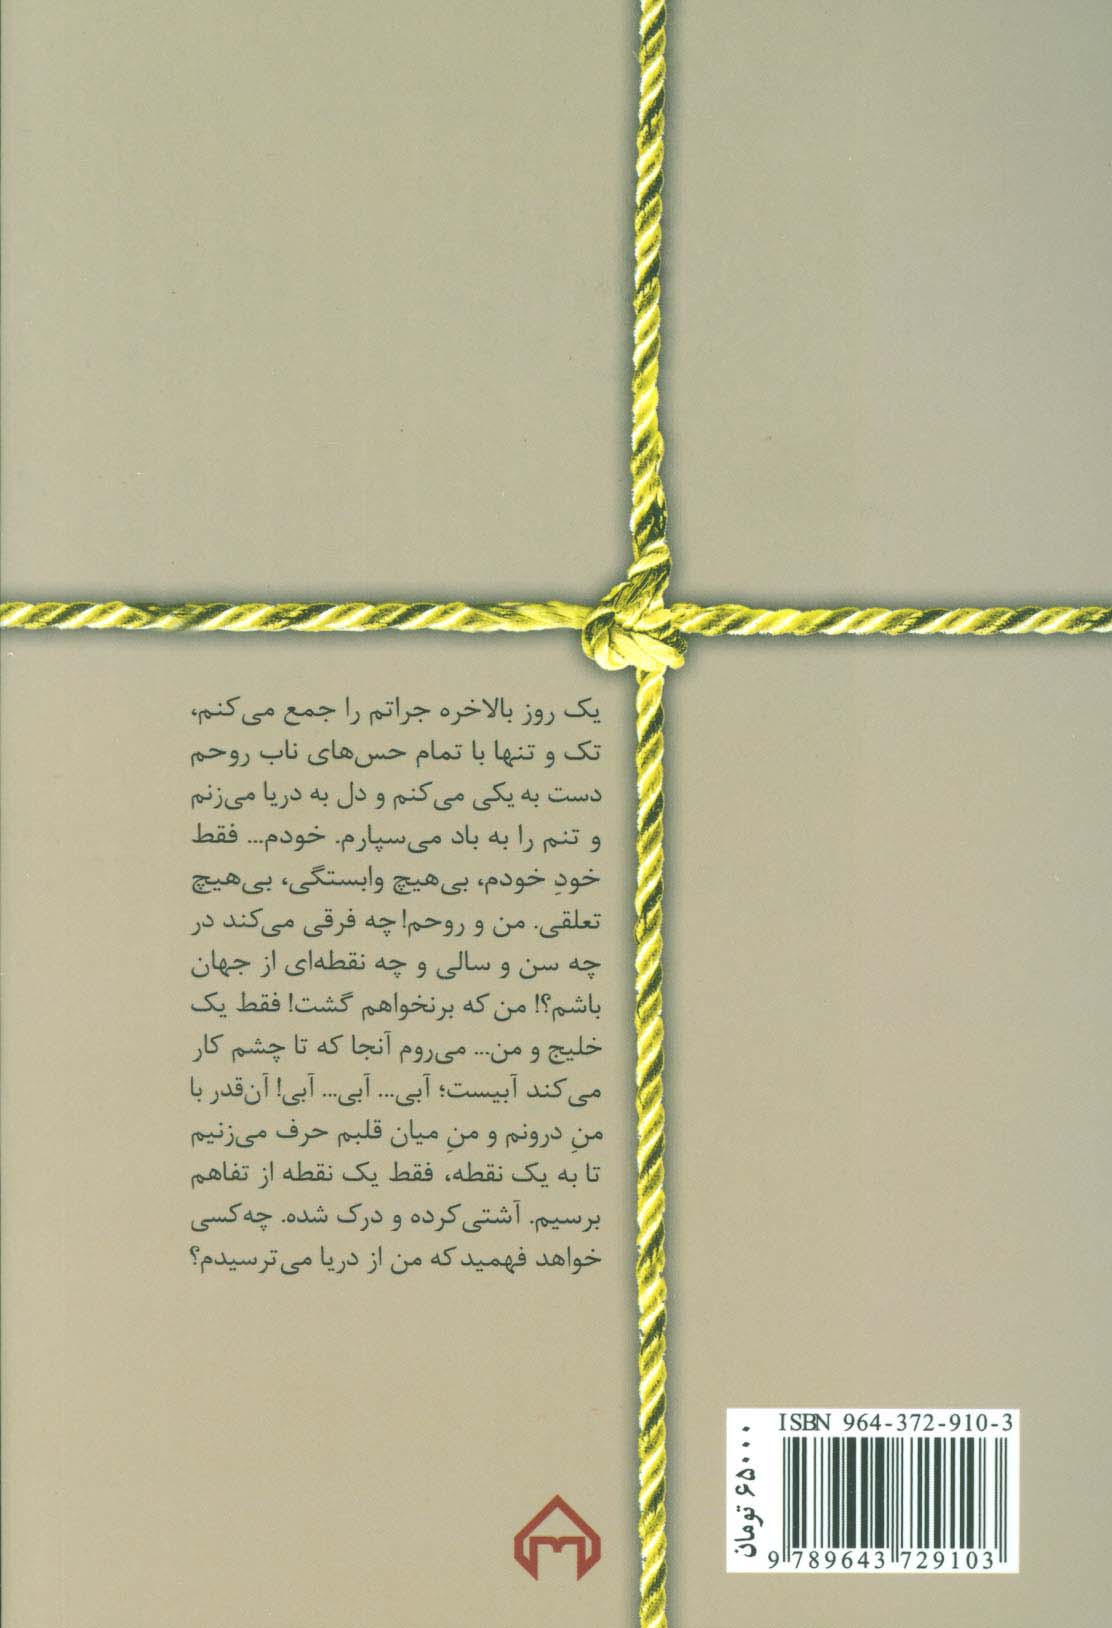 یک روز بالاخره جراتم را جمع می‌کنم،
تک و تنها با تمام حس‌های ناب روحم
دست به یکی می‌کنم و دل به دریا می‌زنم
و تنم را به باد می‌سپارم. خودم... فقط
خودِ خودم، بی‌هیچ وابستگی، بی‌هیچ
تعلقی. من و روحم! چه فرقی می‌کند در
چه سن و سالی و چه نقطه‌ای از جهان
باشم؟! من که برنخواهم گشت! فقط یک
خلیج و من... می‌روم آنجا که تا چشم کار
می‌کند آبیست؛ آبی... آبی... آبی! آن‌قدر با
منِ درونم و منِ میان قلبم حرف می‌زنیم
تا به یک نقطه، فقط یک نقطه از تفاهم
برسیم. آشتی‌کرده و درک شده. چه‌کسی
خواهد فهمید که من از دریا می‌ترسیدم؟
ISBN 964-372-910-3
۶۵۰۰۰ تومان
9 789643 729103